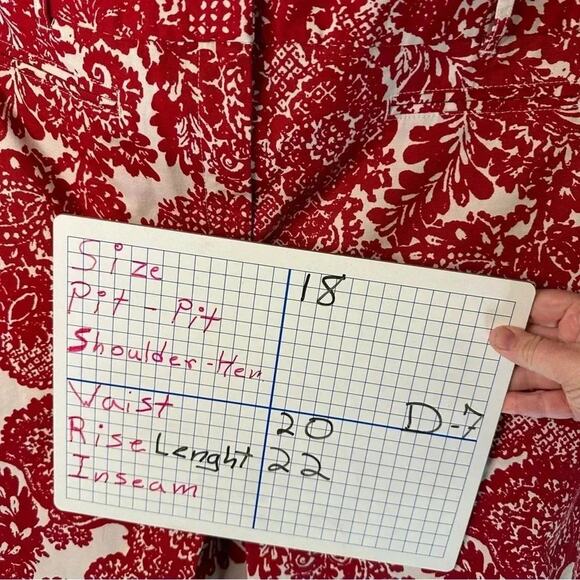 Size 18
Pit - Pit
Shoulder-Hem
Waist 20 D-7
Rise Lenght 22
Inseam